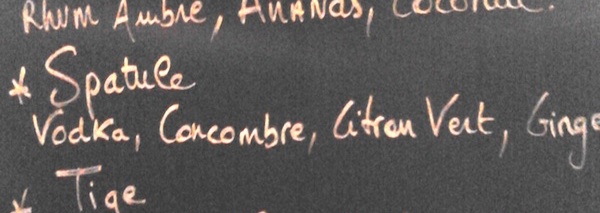 Rhum Ambré, Ananas, Coconut.
* Spatule
Vodka, Concombre, Citron Vert, Ginge
* Tige